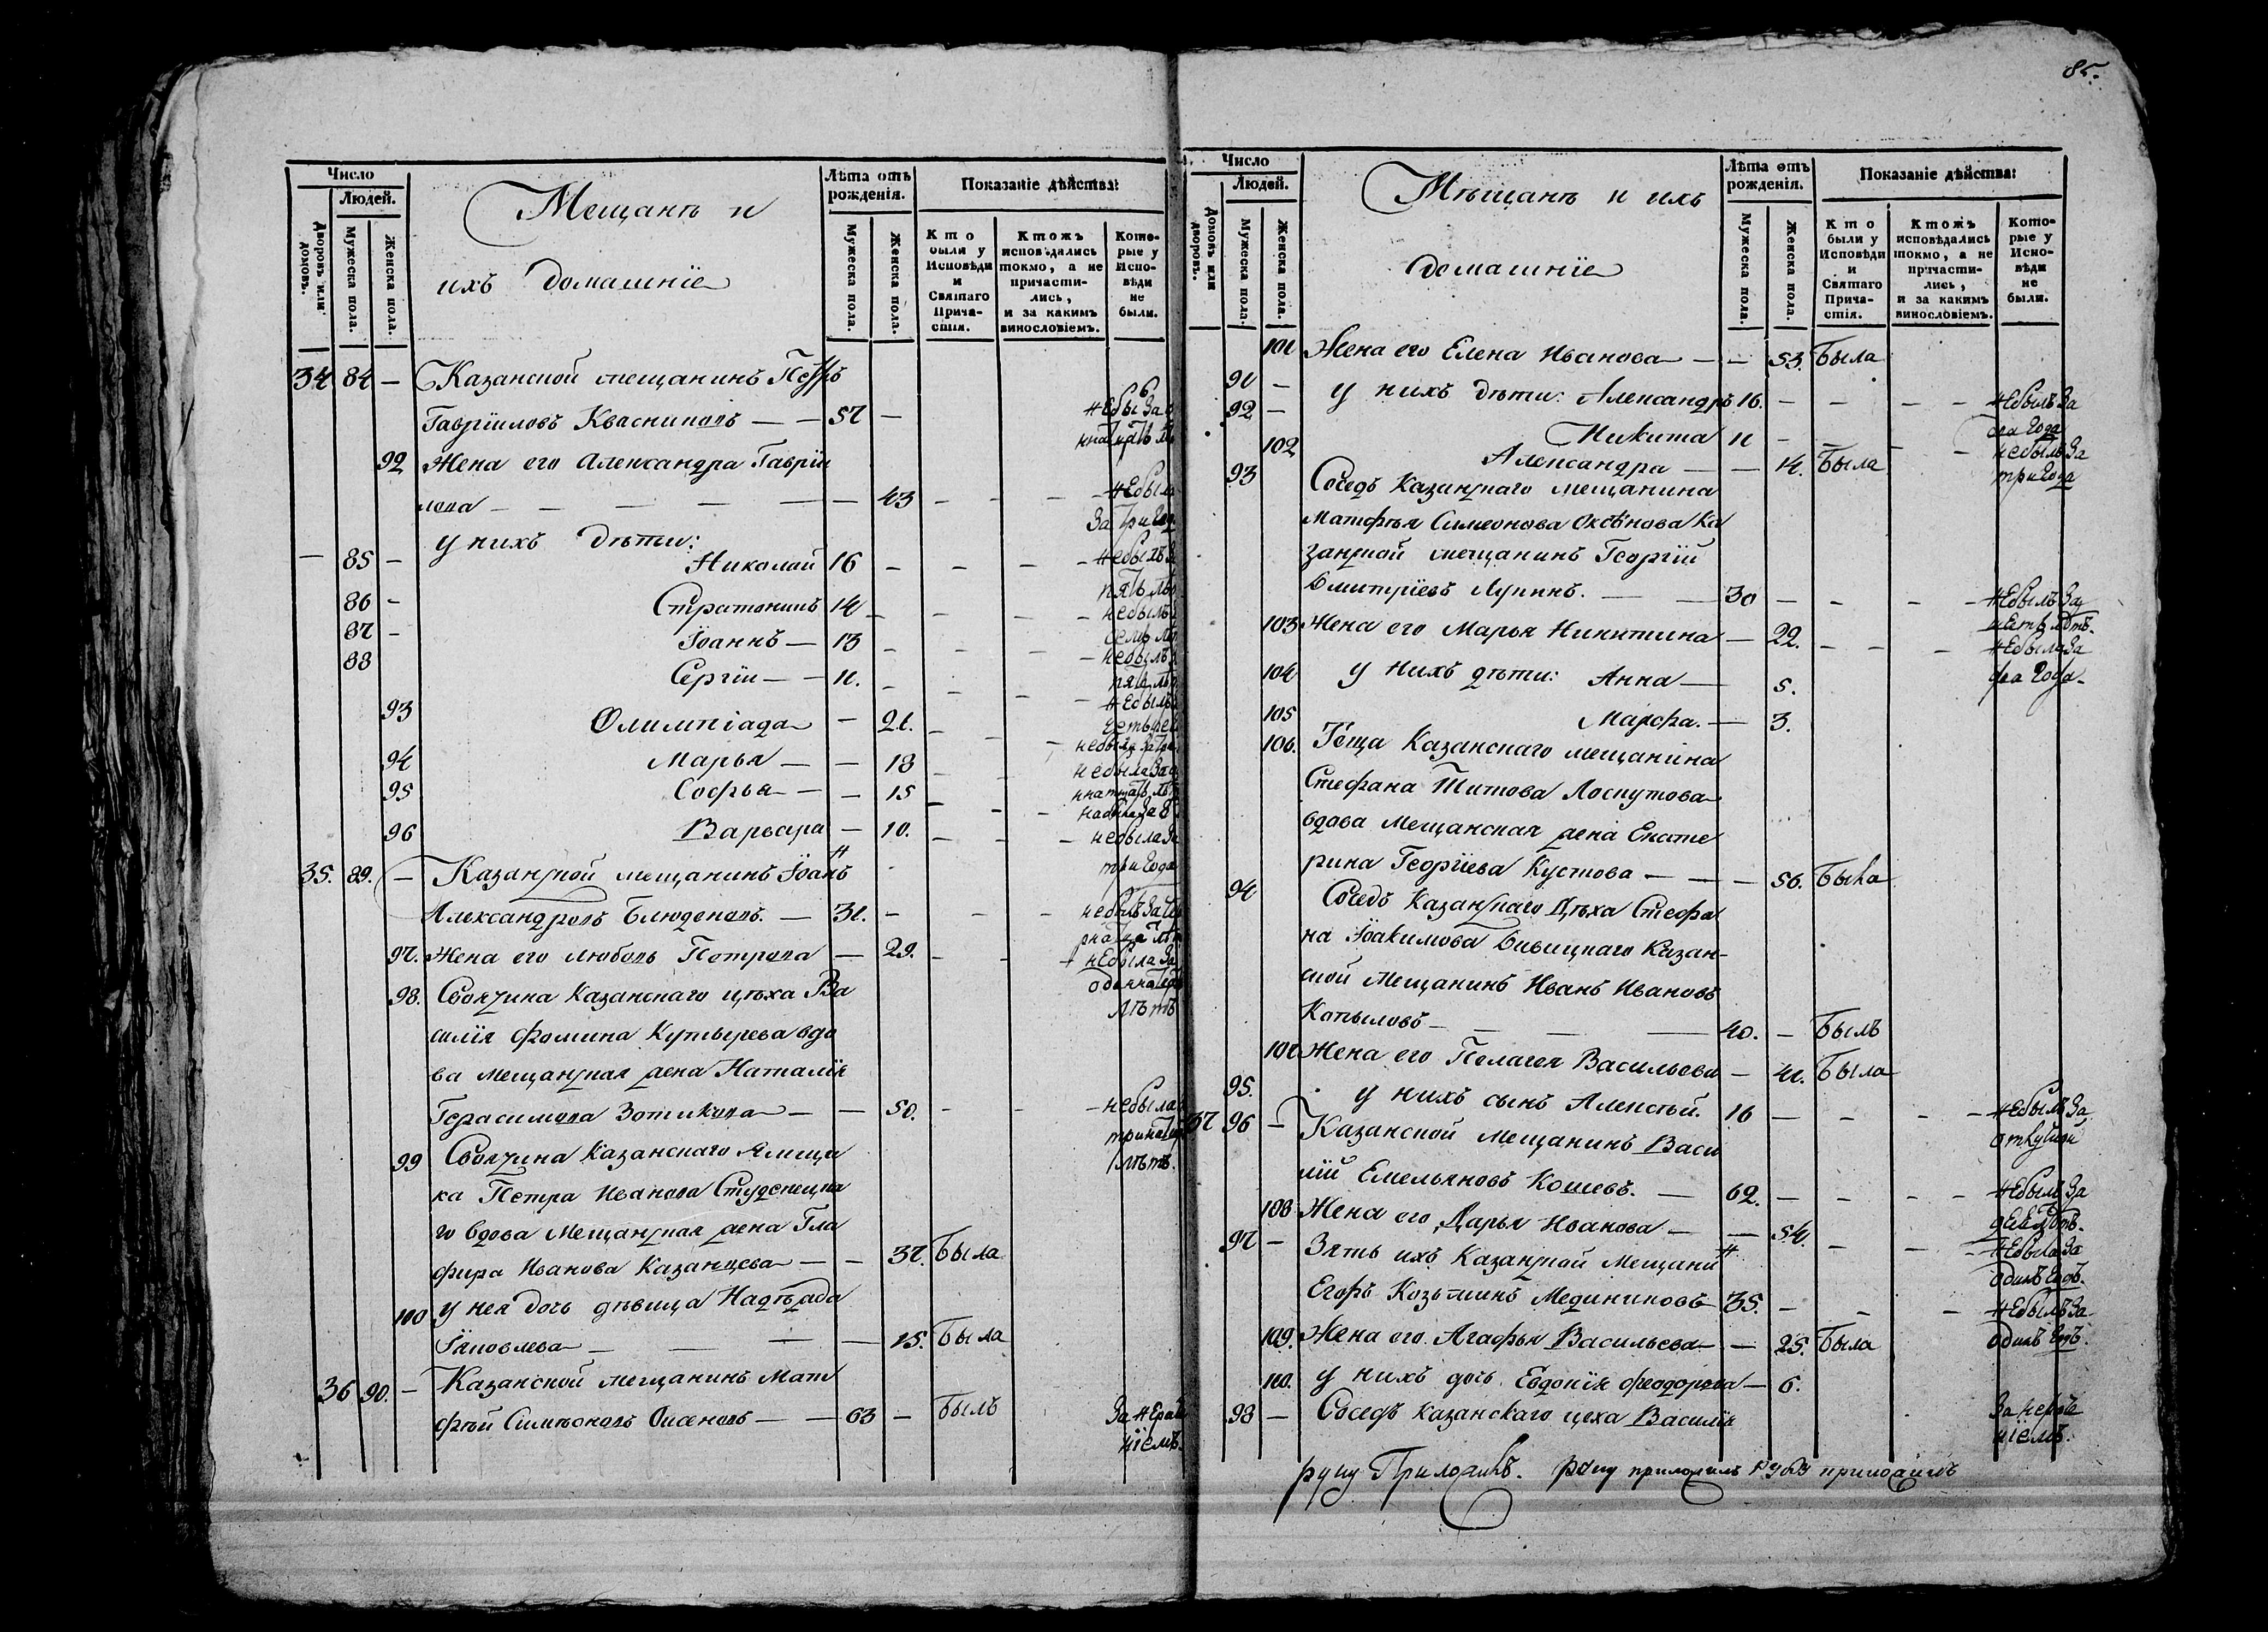 85.
Число
Людей.
Дворовъ или домовъ.
Мужеска пола.
Женска пола.
Мещанъ и
ихъ домашніе
Лѣта отъ рожденія.
Мужеска пола.
Женска пола.
Показаніе дѣйства:
Кто были у Исповѣди и Святаго Прича-стія.
Ктожъ исповѣдались токмо, а не причасти-лись, и за какимъ винословіемъ.
Кото-рые у Испо-вѣди не были.
34 84 — Казанской мещанинъ Петръ
Гавріиловъ Квасниковъ — — 57 —
92 Жена его Александра Гаврiи
лова — — — — — 43 — — — — небыла
За три года
у нихъ дѣти:
— 85 — Николай 16 — — — — небылъ За
пять лѣ
86 — Стратоникъ 14 — — — — небылъ
семь лѣ
87 — Іоаннъ — 13 — — — — небылъ
88 Сергіи — — 11. — — — —
93 Олимпіада — 21. — — —
94 Марья — — 18 — — небыла За
95 Софья — — 15 — — —
96 Варвара — 10. — — — небыла За
три года
35. 89. — Казанской мещанинъ Іоаннъ
Александровъ Блюденовъ. — 31. — — —
97. Жена его Любовь Петрова — 29. — — небыла За
лѣтъ
98. Своячина Казанскаго цѣха Ва
силія Фомина Кутырева вдо
ва мещанская жена Наталія
Герасимова Зотикова — — 50. — — — небыла
лѣтъ.
99 Своячина Казанскаго Ямщи
ка Петра Иванова Студенецка
го вдова Мещанская жена Гла
фира Иванова Казанцева — — 37. Была
100 у нея дочь дѣвица Надѣжда
Яковлева — — — — 15. Была
36 90. — Казанской мещанинъ Мат
фѣй Симеоновъ Оксеновъ — — 63 — Былъ За нера
ніемъ.
Число
Людей.
Домовъ или дворовъ.
Мужеска пола.
Женска пола.
Мѣщанъ и ихъ
домашніе
Лѣта отъ рожденія.
Мужеска пола.
Женска пола.
Показаніе дѣйства:
Кто были у Исповѣди и Святаго Прича-стія.
Ктожъ исповѣдались токмо, а не причасти-лись, и за какимъ винословіемъ.
Кото-рые у Испо-вѣди не были.
101 Жена его Елена Иванова — — 53. Была
91 — у нихъ дѣти: Александръ 16. — — — — небылъ За
два года
92 — Никита 11 — — — — небылъ За
три года
102 Александра — — 14. Была
93 Сосѣдъ Казанскаго мещанина
Матфѣя Симеонова Оксѣнова Ка
занской мещанинъ Георгій
Дмитріевъ Лупинъ. — — 30 — — — — небылъ За
лѣтъ.
103. Жена его Марья Никитина — 22. — — — небыла За
два года
104 у нихъ дѣти: Анна — 5.
105 Марфа. — 3.
106. Теща Казанскаго мещанина
Стефана Титова Лоскутова
вдова Мещанская жена Екате
рина Георгіева Кустова — — — 56. Была
94 Сосѣдъ Казанскаго Цѣха Стефа
на Іоакимова Казан-
ской Мещанинъ Иванъ Ивановъ
Копыловъ — — — 40. — Былъ
107 Жена его Пелагея Васильева — 41. Была
95. у нихъ сынъ Алексѣй. 16 — — — — небылъ За
отлучкой
37 96 — Казанской Мещанинъ Васи
лій Емельяновъ Кошевъ. — 62. — — — — небылъ За
108 Жена его Дарья Иванова — — 54. — — — небыла За
одинъ годъ.
97 — Зять ихъ Казанской Мещанинъ
Егоръ Козьминъ Мединиковъ 35. — — — небылъ За
одинъ годъ.
109. Жена его Агафья Васильева — — 25. Была
110. у нихъ дочь Евдокія Феодорова — 6.
98 — Сосѣдъ Казанскаго цеха Василія
руку Приложилъ. руку приложилъ руку приложилъ